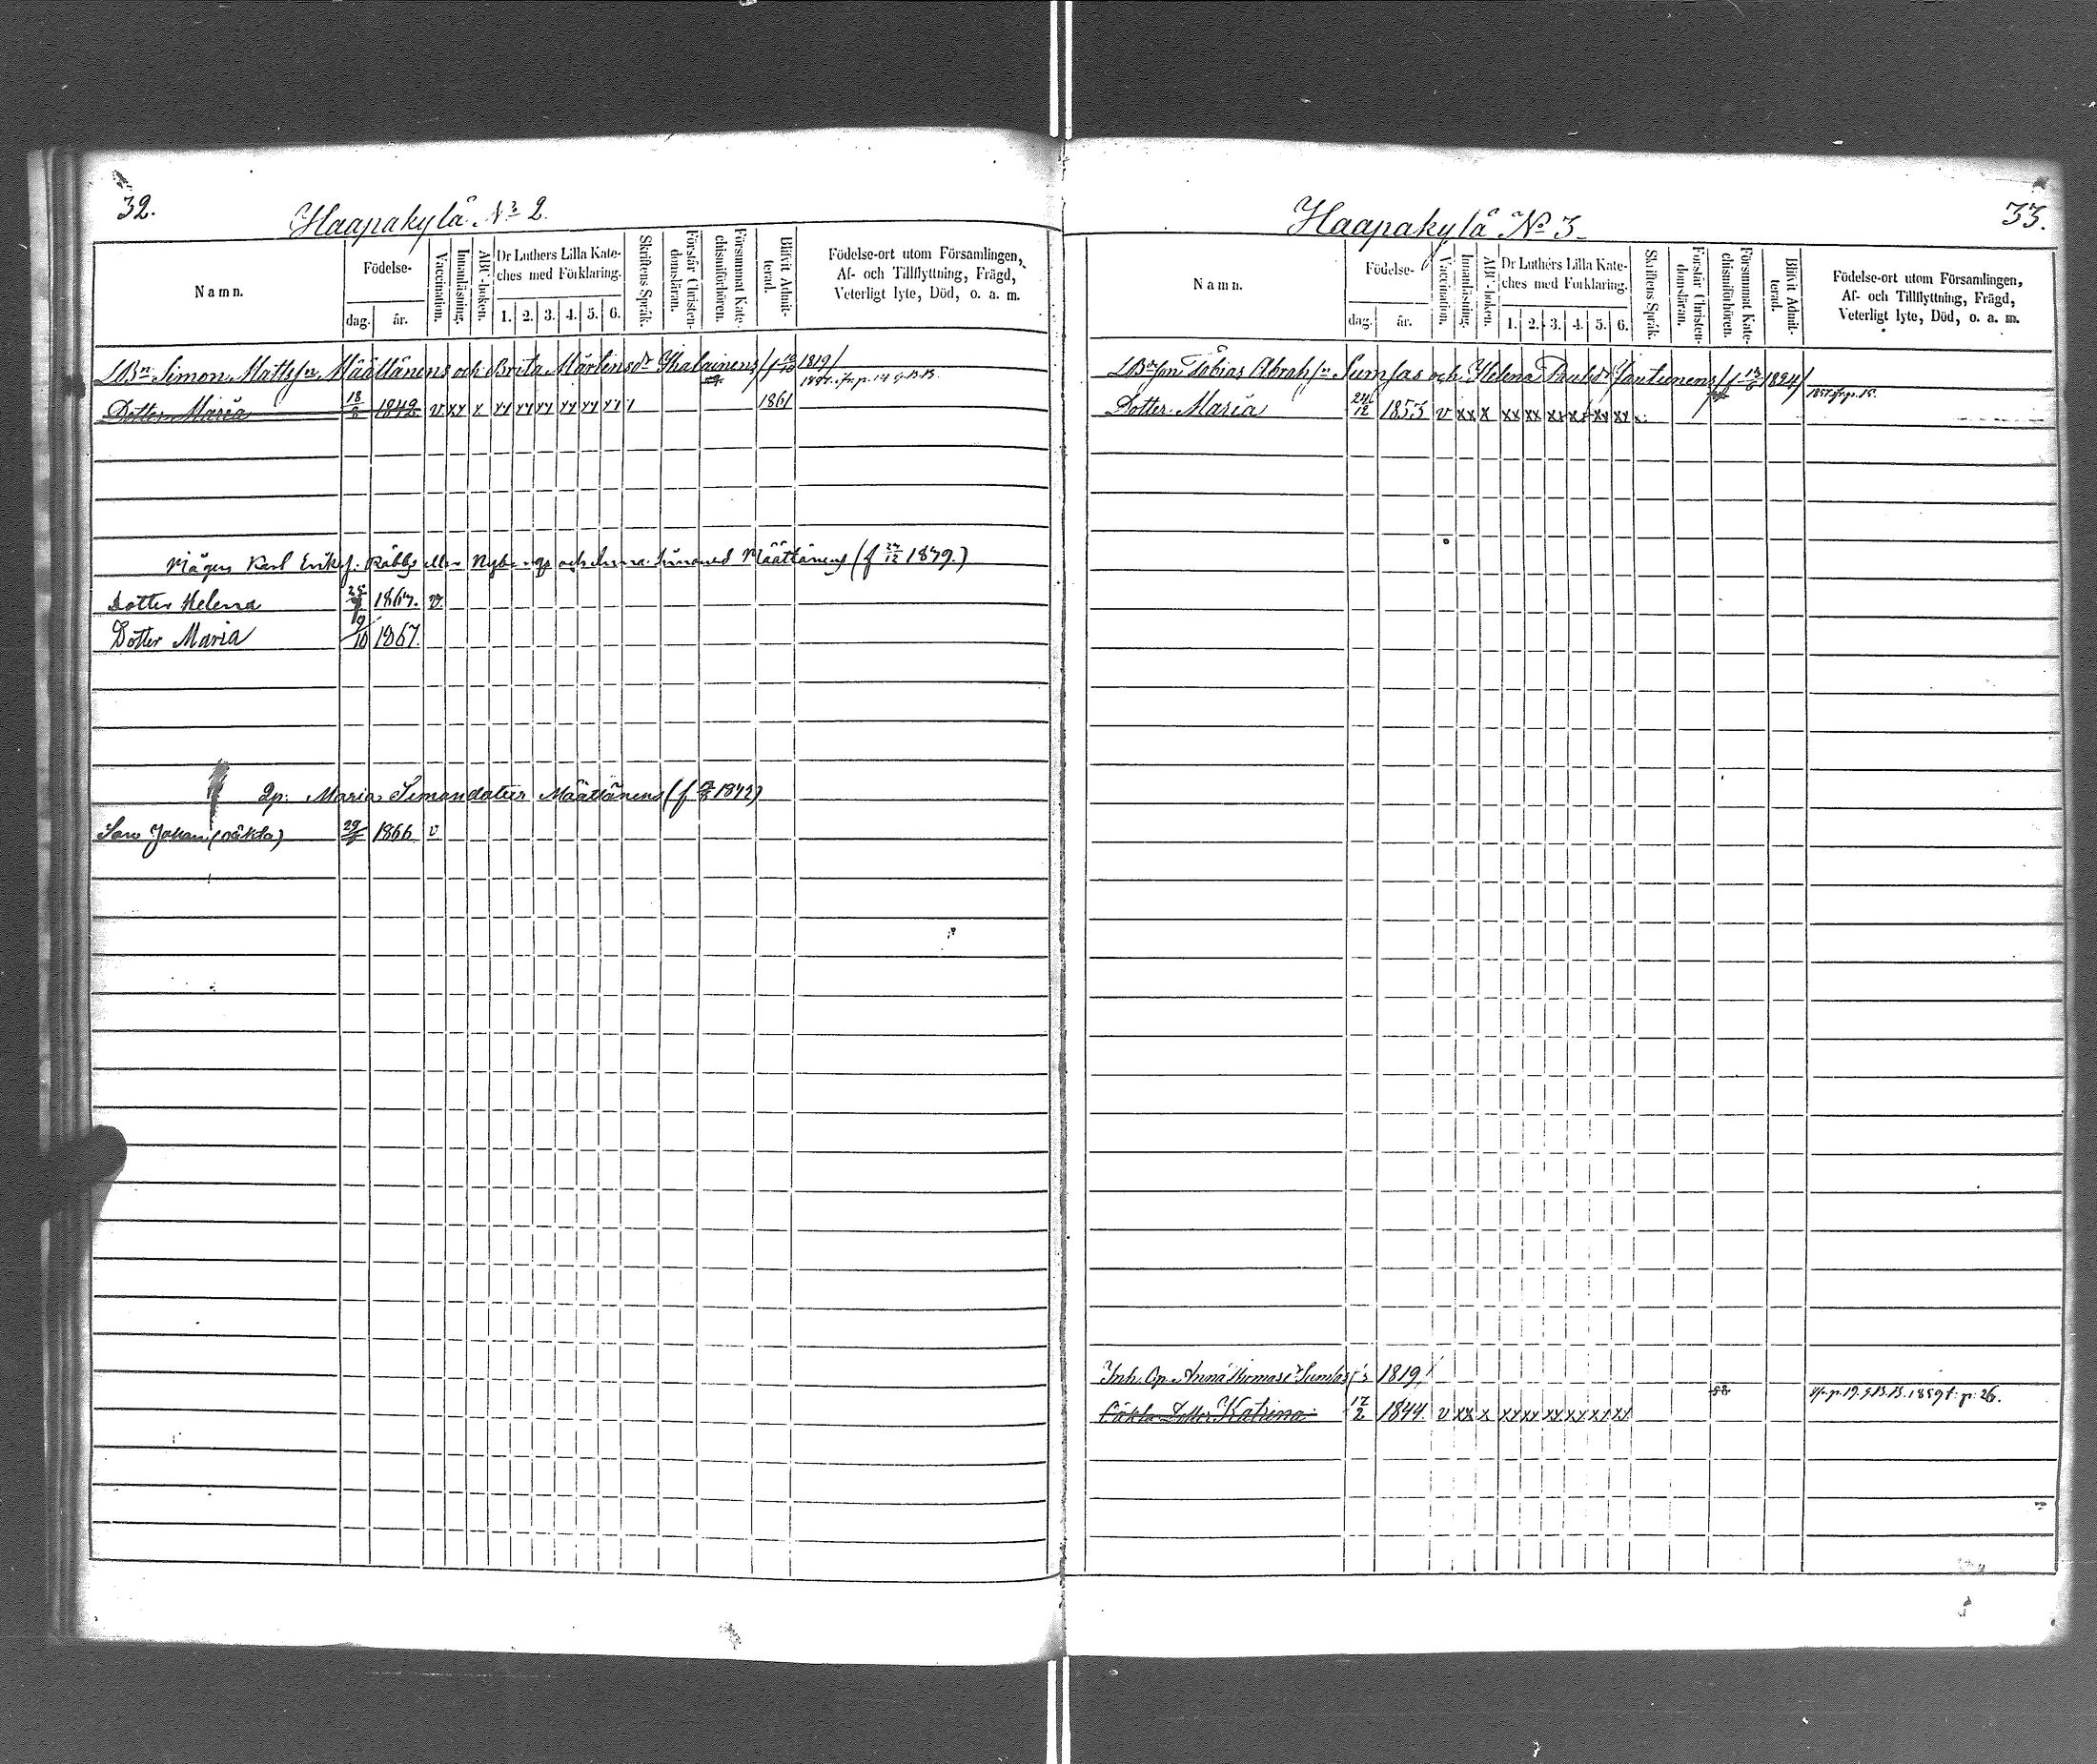 32.
Haapakylä. No 2.
Namn.
Födelse-
dag.
år.
Vaccination.
Innanläsning.
ABC-boken.
Dr Luthers Lilla Kate-
ches med Förklaring.
1. 2. 3. 4. 5. 6.
Skriftens Språk.
Förstår Christen-
domsläran.
Försummat Kate-
chismiförhören.
Blifvit Admit-
terad.
Födelse-ort utom Församlingen,
Af- och Tillflyttning, Frägd,
Veterligt lyte, Död, o. a. m.
LBn Simon Mattsn Määttänens och Brita Mårtensdr Ihalainens /f 1819/
Dotter Maria 18/8 1842 v xx x xx xx xx xx xx xx x 1861
Mågen Karl Eriks. Räbbs eller Nybergs och Anna Simonsd Määttänens (f 27/12 1839.)
Dotter Helena 1865. v.
Dotter Maria 9/10 1867.
Qp: Maria Simondotter Määttänens (f 1842)
Son Johan (oäkta) 29/ 1866 v
33.
Haapakylä No 3.
Namn.
Födelse-
dag.
år.
Vaccination.
Innanläsning.
ABC-boken.
Dr Luthers Lilla Kate-
ches med Förklaring.
1. 2. 3. 4. 5. 6.
Skriftens Språk.
Förstår Christen-
domsläran.
Försummat Kate-
chismiförhören.
Blifvit Admit-
terad.
Födelse-ort utom Församlingen,
Af- och Tillflyttning, Frägd,
Veterligt lyte, Död, o. a. m.
Tobias Abrahsn Sumsas och Helena Paulsdr Jantunens /f 1824/
Dotter Maria 24/12 1853 v xx x xx xx xx xx xx xx x.
Inh. Qp. Anna Sumsas 1819/
Oäkta Dotter Katrina 17/2 1844. v xx x xx xx xx xx xx xx 1859 f: p: 26.